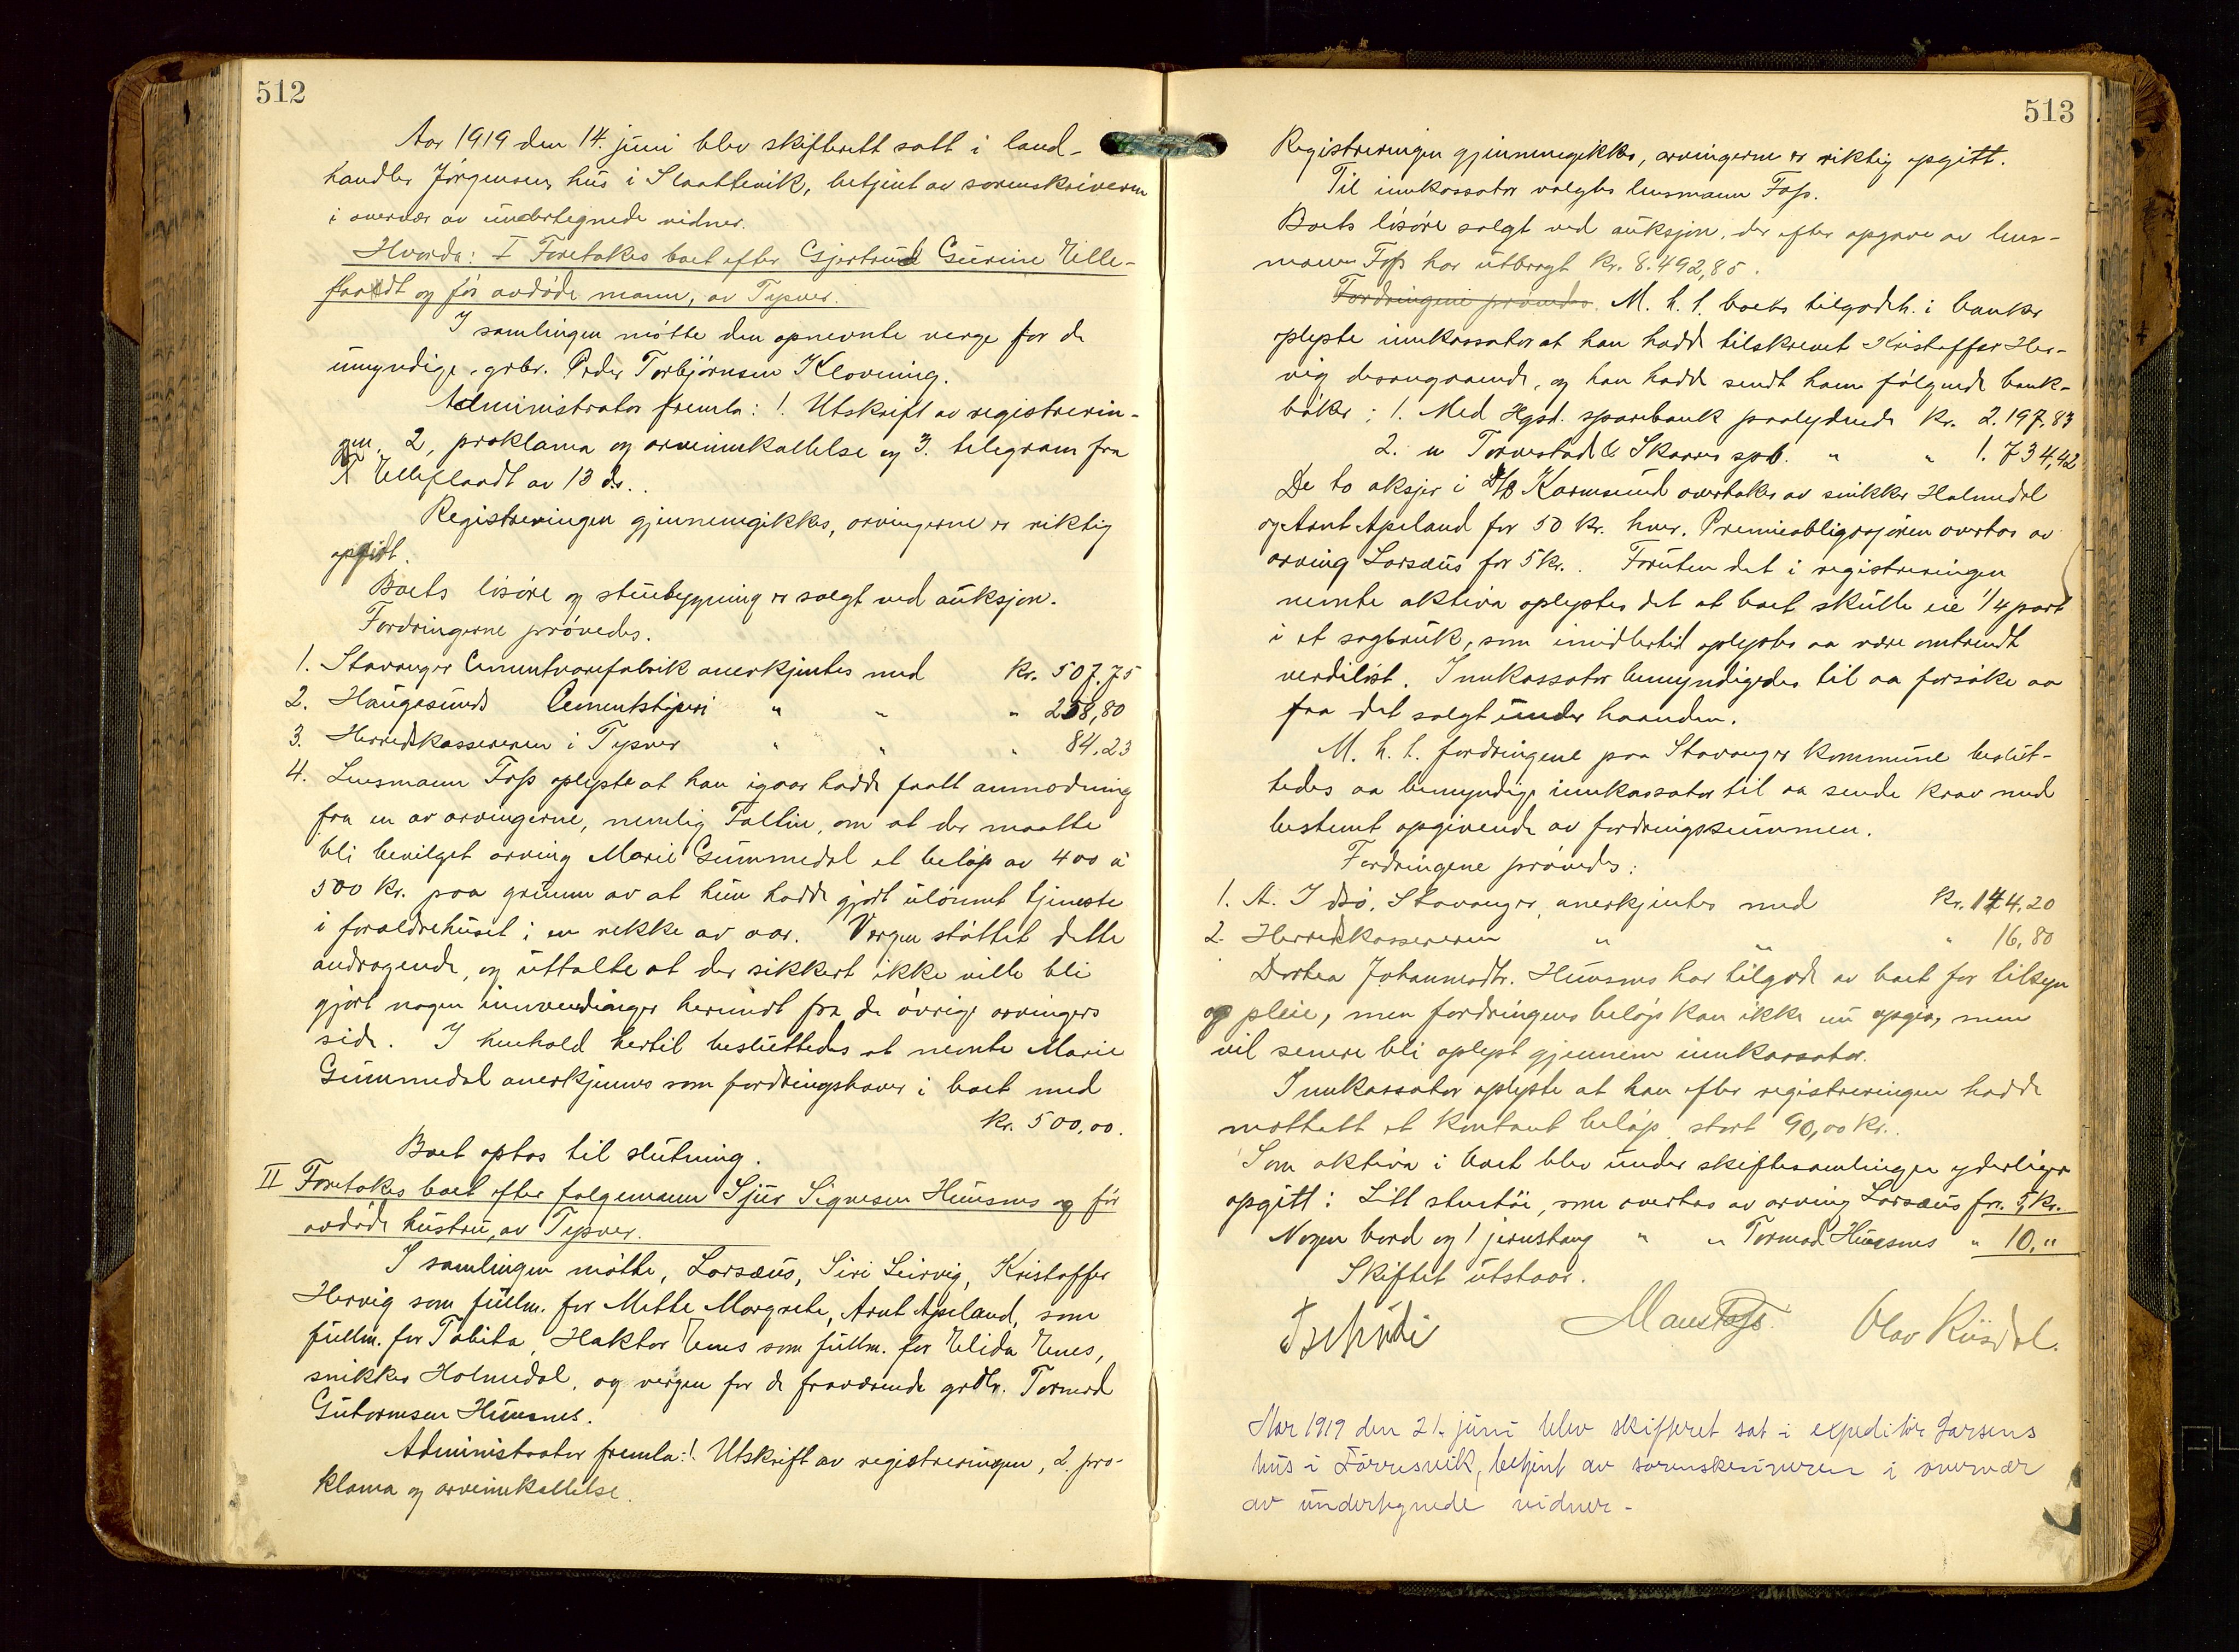 512
Aar 1919 den 14. juni blev skifterett satt i land-
handler Jørgensens hus i Slaattevik, betjent av sorenskriveren
i overvær av undertegnede vidner.
Hvorda: I Foretokes boet efter Gjertrud Gurine Elle-
flaadt og før avdøde mann, av Tysvær.
I samlingen møtte den opnevnte verge for de
umyndige, grbr. Peder Torbjørnsen Klovning.
Administrator fremla: 1. Utskrift av registrerin-
gen, 2, proklama og arveinnkallelse og 3. telegram fra
T Elleflaadt av 13 ds..
Registreringen gjennemgikkes, arvingerne er riktig
opgitt.
Boets løsøre og stuebygning er solgt ved auksjon.
Fordringerne prøvedes.
1. Stavanger Cementvarefabrik anerkjentes med Kr. 507,75
2. Haugesunds Cementstøperi " " " 258,80
3. Herredskassereren i Tysvær " " " 84.23
4. Lensmann Foss oplyste at han igaar hadde faatt anmodning
fra en av arvingerne, nemlig Faltin, om at der maatte
bli bevilget arving Marie Gummedal et beløp av 400 à
500 Kr. paa grunn av at hun hadde gjort ulønnet tjeneste
i foreldrehuset i en rekke av aar. Vergen støttet dette
andragende, og uttalte at der sikkert ikke ville bli
gjort nogen innvendinger herimot fra de øvrige arvingers
side. I henhold hertil besluttedes at nevnte Marie
Gummedal anerkjennes som fordringshaver i boet med
Kr. 500,00.
Boet optas til slutning.
II Foretokes boet efter folgemann Sjur Signesen Huusnes og før
avdøde hustru, av Tysvær.
I samlingen møtte, Lorsæus, Siri Leirvig, Kristoffer
Hervig som fullm. for Mette Margrete, Arnt Apeland, som
fullm. for Tabita, Haktor Enes som fullm. for Elida Enes,
snikker Holmedal, og vergen for de fraværende grdbr. Tormod
Gutormsen Huusnes.
Administrator fremla: 1. Utskrift av registreringen, 2. pro-
klama og arveinnkallelse.
513
Registreringen gjennemgikkes, arvingerne er riktig opgitt.
Til innkassator valgtes lensmann Foss.
Boets løsøre solgt ved auksjon, der efter opgave av lens-
mann Foss har utbragt Kr. 8.492,85.
Fordringene prøvedes. M. h. t. boets tilgodeh. i banker
oplyste innkassator at han hadde tilskrevet Kristoffer Her-
vig desangaaende, og han hadde sendt ham følgende bank-
bøker: 1. Med Hgsd. sparebank paalydende Kr. 2.197,83
2. " Torvestad & Skaare spb. " " 1.734,42
De to aksjer i D/S Karmsund overtokes av snikker Holmedal
og Arnt Apeland for 50 kr. hver. Premieobligasjonen overtas av
arving Lorsæus for 5 kr.. Foruten det i registreringen
nevnte aktiva oplystes det at boet skulle eie 1/4 part
i et sagbruk, som imidlertid oplystes aa være omtrendt
verdiløst. Innkassator bemyndigedes til aa forsøke aa
faa det solgt under haanden.
M. h. t. fordringene paa Stavanger kommune beslut-
tedes aa bemyndige innkassator til aa sende krav med
bestemt opgivende av fordringssummen.
Fordringene prøvedes:
1. A. Idsø, Stavanger, anerkjentes med Kr. 144,20
2. Herredskassereren " " " 16,80
Dortea Johannesdtr. Huusnes har tilgode av boet for tilsyn
og pleie, men fordringens beløp kan ikke nu opgies, men
vil senere bli oplyst gjennem innkassator.
Innkassator oplyste at han efter registreringen hadde
mottatt et kontant beløp stort 90,00 Kr..
Som aktiva i boet blev under skiftesamlingen yderligere
opgitt: Litt stentøi, som overtas av arving Lorsæus for. 5 kr.
Nogen bord og 1 jernstang " " Tormod Huusnes " 10,"
Skiftet utstaar.
Tschudi Mons Foss. Olav Kiisdal.
Aar 1919 den 21. juni blev skifteret sat i expeditør Larsens
hus i Førresvik, betjent av sorenskriveren i overvær
av undertegnede vidner.-